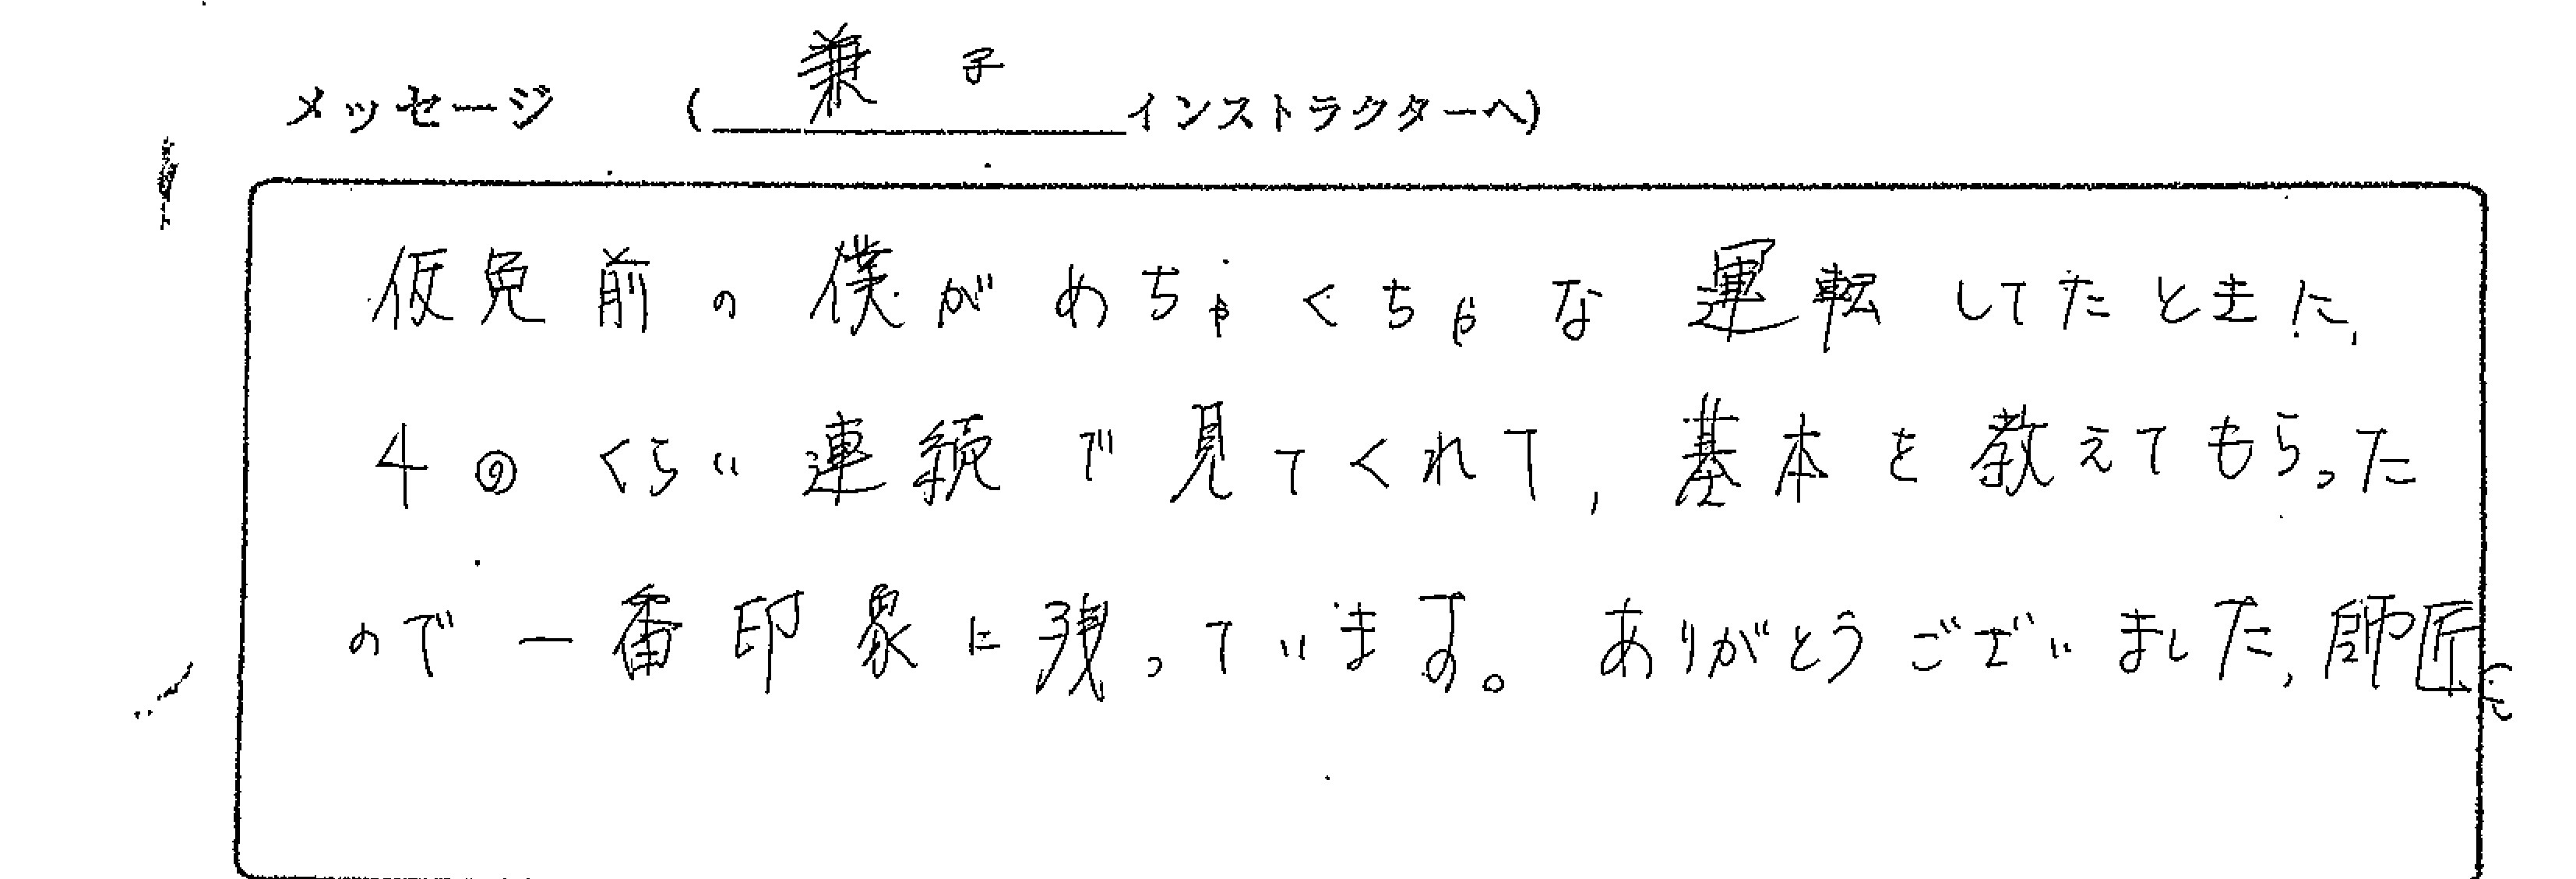 メッセージ （兼子インストラクターへ）
仮免前の僕がめちゃくちゃな運転してたときに、
4回くらい連続で見てくれて、基本を教えてもらった
ので一番印象に残っています。ありがとうございました、師匠